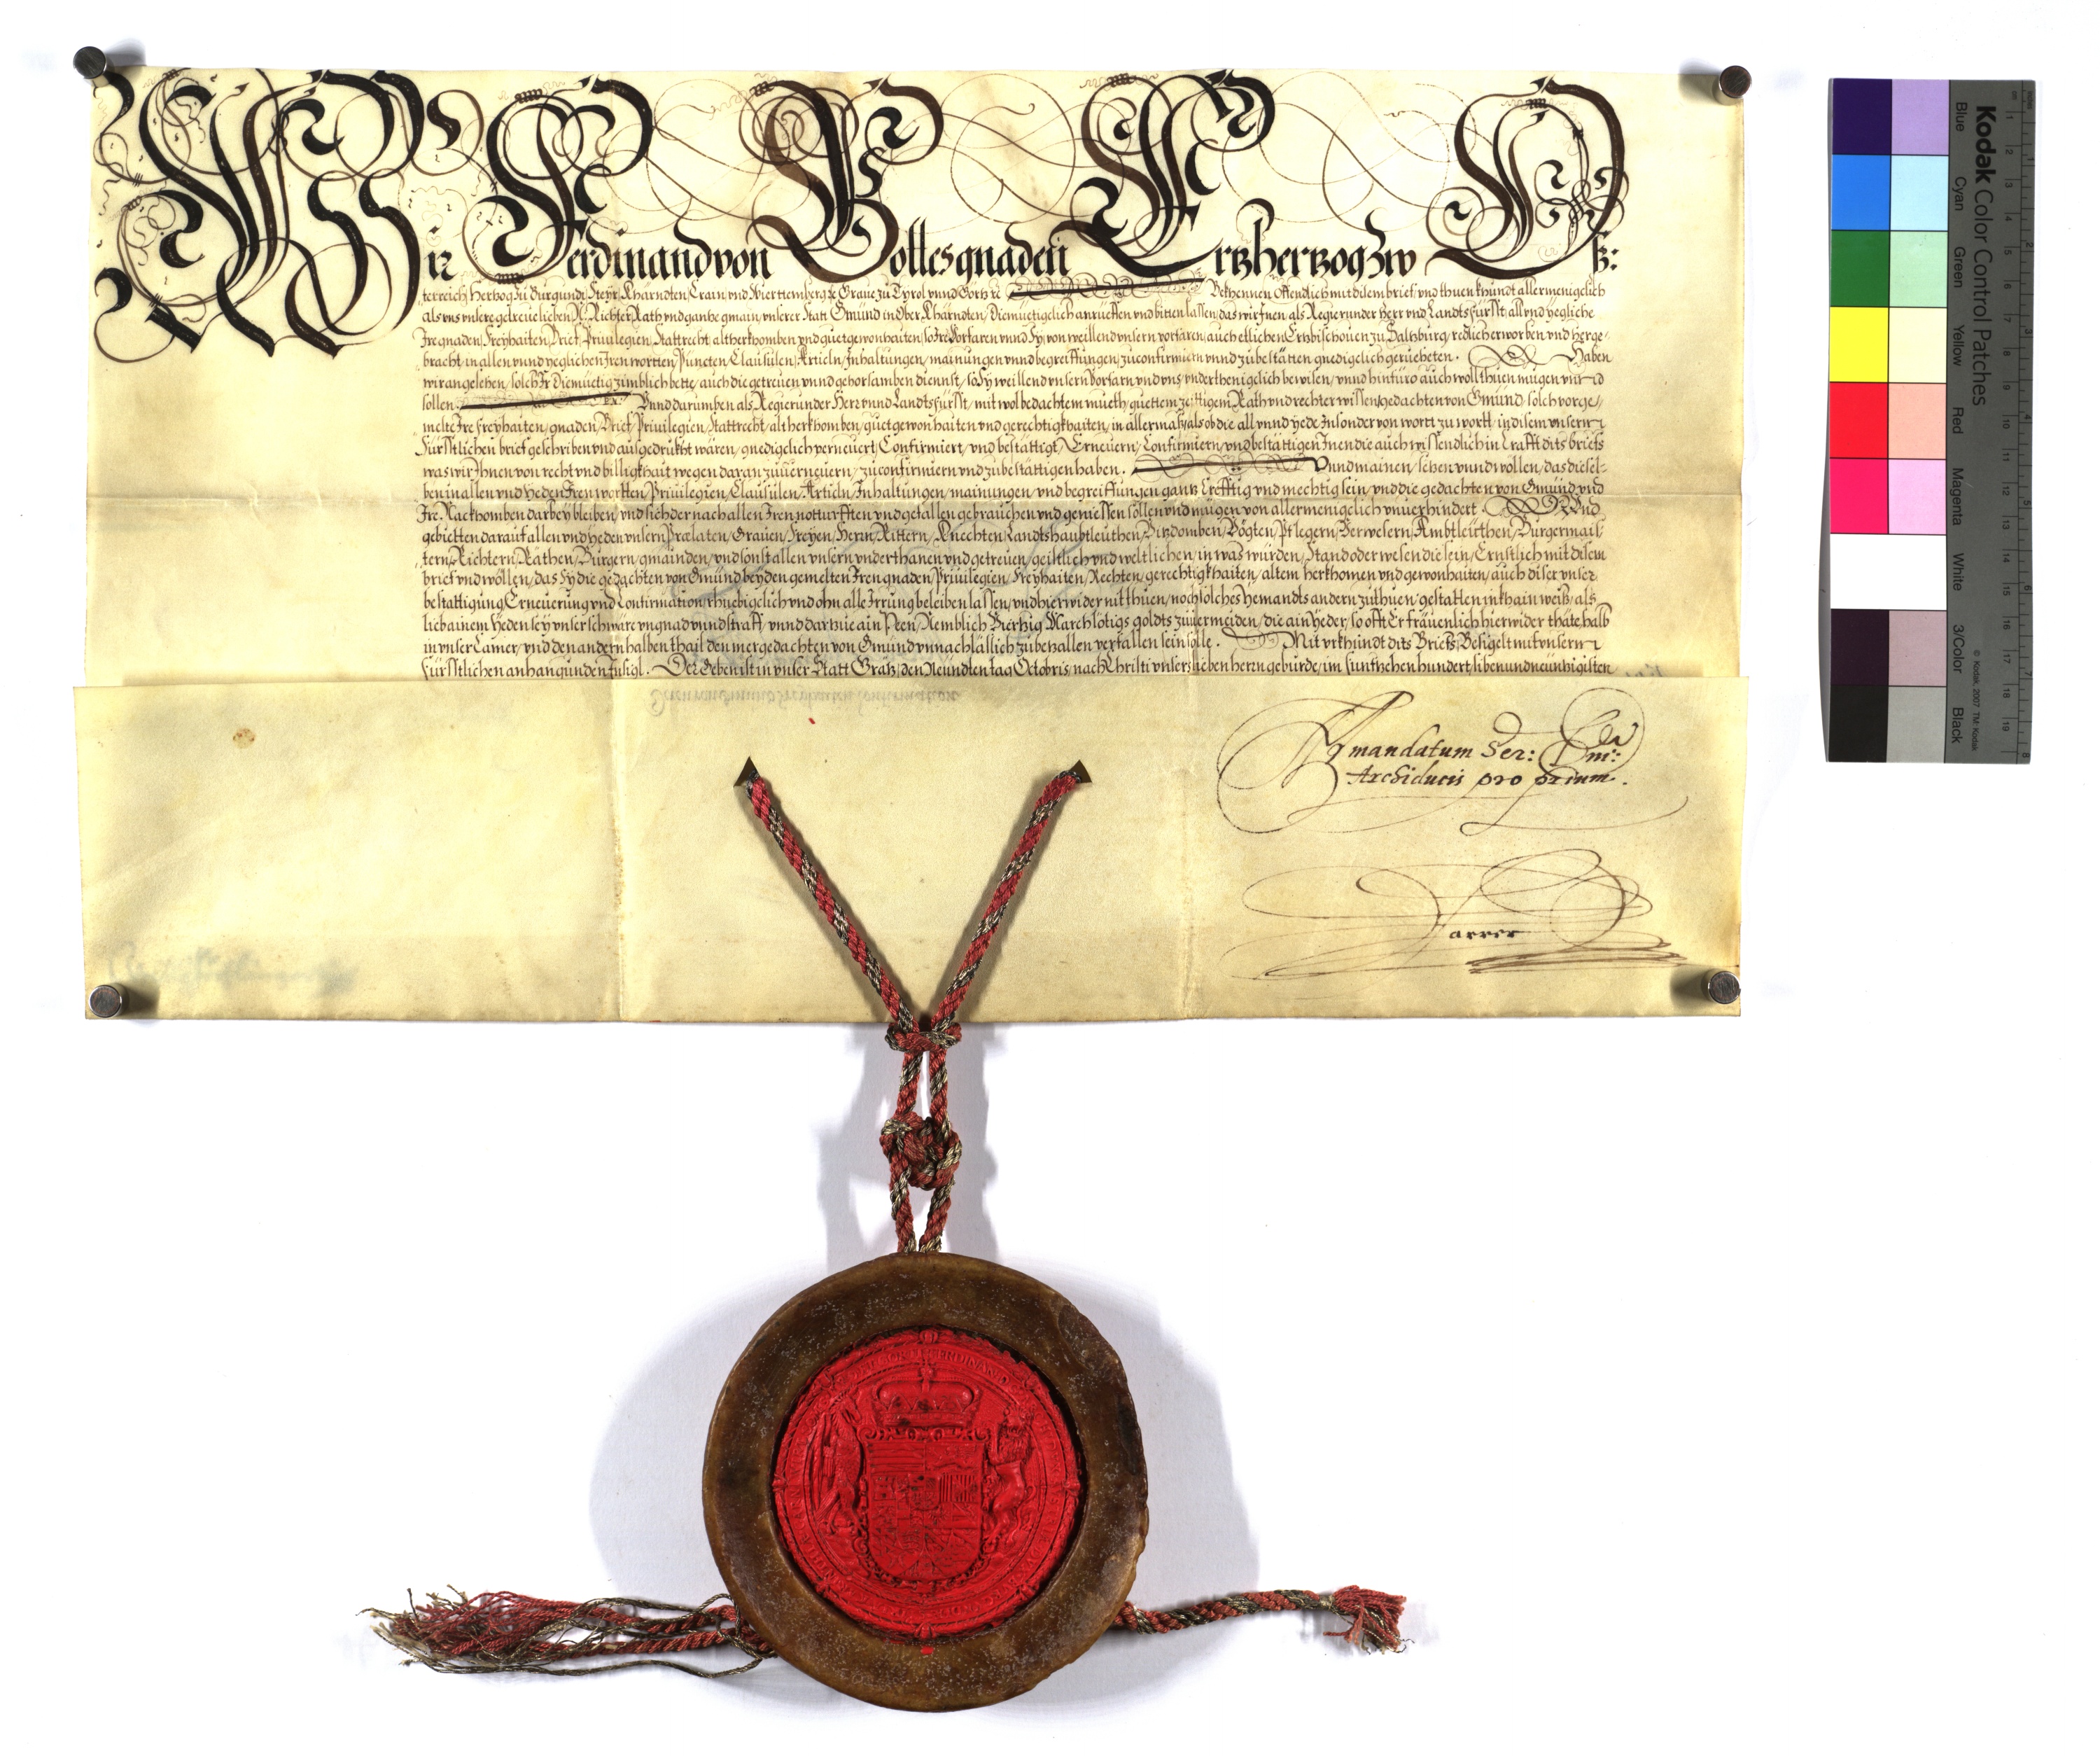 Wir Ferdinand von Gottes gnaden Ertzhertzog zw Ossz:
terreich Hertzog zu Burgundi, Steyr, Khärndten, Crain, vnd Wiertemberg &c Graue zu Tyrol vnnd Görtz &c Bekhennen offendlich mit disem brief, vnd thuen khundt allermenigelich
als vns vnsere getreue lieben N: Richter Rath vnd gantze gmain, vnserer Statt Gmünd in Ober Khärndten, Diemüetiglich anrueffen vnd bitten lassen, das wir Inen als Regierunder Herr vnd Landtsfürsst, all vnd yegliche
Ire gnaden, Freyhaiten, Brief, Priuilegien, Stattrecht altherkhomben vnd guet gewonhaiten, so Ire Vorfaren vnnd Sy, von weillend vnsern vorfaren, auch etlichen Ertzbischouen zu Saltzburg, redlich erworben vnd herge-
bracht, in allen vnnd yeglichen Iren wortten, Puncten, Clausulen, Articln, Inhaltungen, mainungen vnnd begreiffungen, zu confirmiern vnnd zu bestätten gnedigelich geruehten. Haben
wir angesehen, solch Ir Diemüetig zimblich bette, auch die getreuen vnnd gehorsamben diennst, so Sy weillend vnsern Vorfarn vnd vns, vnderthenigelich bewisen, vnnd hinfüro auch woll thuen mügen vnd
sollen. Vnnd darumben als Regierunder Herr vnnd Landtsfürsst, mit wolbedachtem mueth, guettem zeittigem Rath vnd rechter wissen, gedachten von Gmünd, solch vorge-
melte Ire freyhaiten, gnaden, Brief, Priuilegien, Stattrecht, altherkhomben, guet gewonhaiten vnd gerechtigkhaiten, in allermass, als ob die all vnnd yede Insonder von wort zu wortt, in disem vnserm
Fürsstlichen brief geschriben vnd ausgedrukht wären, gnedigelich verneuert, Confirmiert, vnd bestättigt, Erneuern, Confirmiern, vnd bestättigen Inen die auch wissendlich in Crafft dits briefs
was wir Ihnen von recht vnd billigkhait wegen daran zuuerneuern, zu confirmiern vnd zu bestättigen haben. Vnnd mainen, setzen vnnd wöllen, das diesel-
ben in allen vnd yeden Iren wortten, Priuilegien, Clausulen, Articln, Inhaltungen, mainungen, vnd begreiffungen gantz Crefftig vnd mechtig sein, vnd die gedachten von Gmünd vnd
Ire Nackhomben darbey bleiben, vnd sich der nach allen Iren notturfften vnd gefallen gebrauchen vnd geniessen sollen vnd mügen von allermenigelich vnuerhindert. Vnd
gebietten darauf allen vnd yeden vnsern Praelaten, Grauen, Freyen, Herrn, Rittern, Knechten, Landtshaubtleüthen, Vitzdomben, Vögten, Pflegern, Verwesern, Ambtleüthen, Burgermais-
tern, Richtern, Räthen, Burgern, gmainden, vnd sonst allen vnsern vnderthanen vnd getreuen, geistlich vnd weltlichen, in was würden, Stand oder wesen die sein, Ernstlich mit disem
brief vnd wöllen, das sy die gedachten von Gmünd bey den gemelten Iren gnaden, Priuilegien, Freyhaiten, Rechten, gerechtigkhaiten, altem herkhomen vnd gewonhaiten, auch diser vnser
bestattigung Erneuerung vnd Confirmation, rhuebigelich vnd ohn alle Irrung beleiben lassen, vnd hierwider nit thuen, noch solches yemandts andern zu thuen, gestatten in khain weiß, als
lieb ainem yeden sey vnser schwäre vngnad vnnd straff, vnnd darzue ain Peen, Nemblich Viertzig March lötigs goldts zuuermeiden, die ain yeder, so offt Er fräuenlich hierwider thäte, halb
in vnser Camer, vnd den andern halben thail den mergedachten von Gmünd vnnachläslich zubezallen verfallen sein solle. Mit vrkhundt dits Briefs, Besigelt mit vnserm
fürsstlichen anhangunden Insigl. Der Geben ist in vnser Statt Grätz, den Neundten tag Octobris, nach Christi vnsers lieben herrn geburde, im funfftzehen hundert, siben vnd neuntzigisten
Ad mandatum Ser: Dni:
Archiducis proprium.
Harrer
FERDINAND
Kodak Color Control Patches
Blue Cyan Green Yellow Red Magenta White 3/Color Black
© Kodak, 2007 TM: Kodak